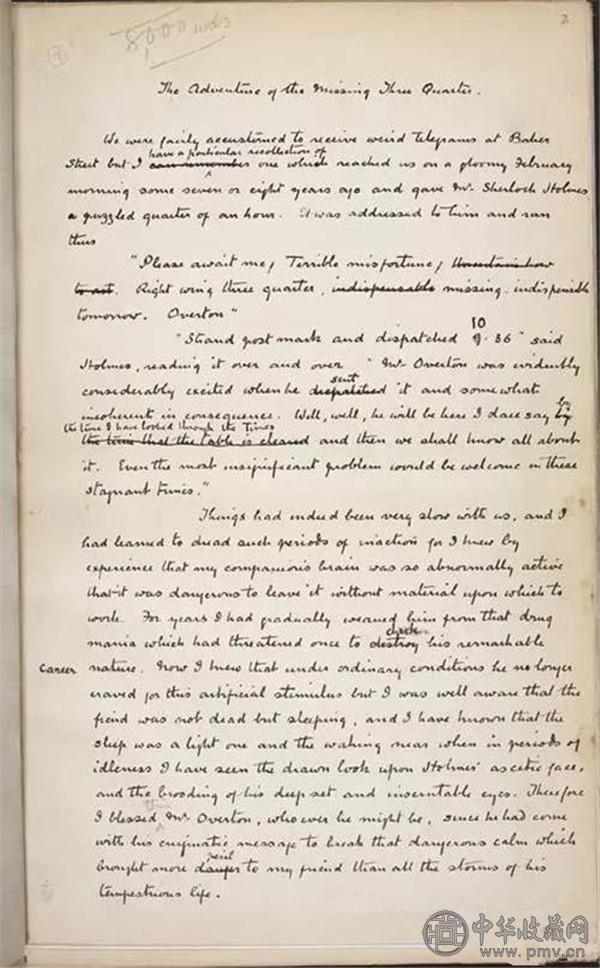 2
8,000 wds
The Adventure of the Missing Three Quarter.
We were fairly accustomed to receive weird telegrams at Baker
have a particular recollection of
Street but I can remember one which reached us on a gloomy February
morning some seven or eight years ago and gave Mr. Sherlock Holmes
a puzzled quarter of an hour. It was addressed to him and ran
thus
"Please await me, Terrible misfortune, Uncertain how
to act. Right wing three quarter, indispensable missing. indispensable
tomorrow. Overton"
10
"Strand post mark and dispatched 9.36" said
Holmes, reading it over and over. "Mr Overton was evidently
sent
considerably excited when he despatched it and somewhat
incoherent in consequence. Well, well, he will be here I dare say by
by
the time I have looked through the Times
the time that the table is cleared and then we shall know all about
it. Even the most insignificant problem would be welcome in these
stagnant times."
Things had indeed been very slow with us, and I
had learned to dread such periods of inaction for I knew by
experience that my companion's brain was so abnormally active
that it was dangerous to leave it without material upon which to
work. For years I had gradually weaned him from that drug
check
mania which had threatened once to destroy his remarkable
career nature. Now I knew that under ordinary conditions he no longer
craved for this artificial stimulus but I was well aware that the
fiend was not dead but sleeping, and I have known that the
sleep was a light one and the waking near when in periods of
idleness I have seen the drawn look upon Holmes' ascetic face,
and the brooding of his deep set and inscrutable eyes. Therefore
I blessed Mr. Overton, whoever he might be, since he had come
with his enigmatic message to break that dangerous calm which
peril
brought more danger to my friend than all the storms of his
tempestuous life.
中华收藏网
www.pmv.cn